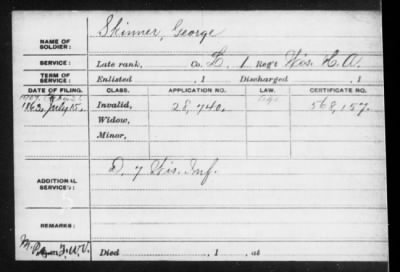 NAME OF SOLDIER: Skinner, George
SERVICE: Late rank, Co. L, 1 Reg't Wis. H. A.
TERM OF SERVICE: Enlisted , 1 Discharged , 1
DATE OF FILING. CLASS. APPLICATION NO. LAW. CERTIFICATE NO.
1863, July 15. Invalid, 28,740. 568,157.
Widow,
Minor,
ADDITIONAL SERVICE: D. 7 Wis. Inf.
REMARKS:
Died , 1 , at